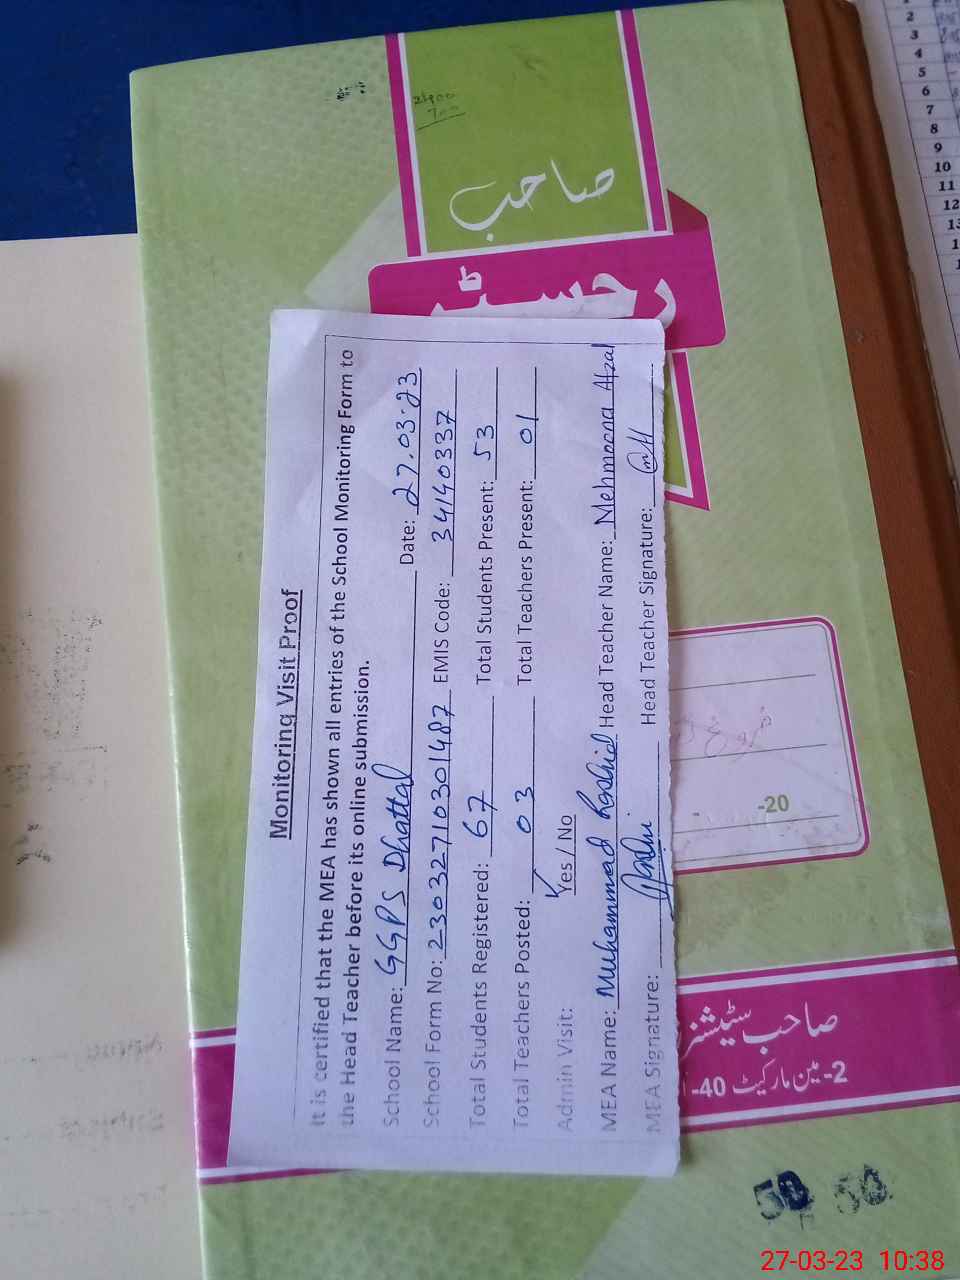 صاحب
رجسٹر
Monitoring Visit Proof
It is certified that the MEA has shown all entries of the School Monitoring Form to
the Head Teacher before its online submission.
School Name: GGPS Dhattal Date: 27.03.23
School Form No: 23032710301487 EMIS Code: 34140337
Total Students Registered: 67 Total Students Present: 53
Total Teachers Posted: 03 Total Teachers Present: 01
Admin Visit: Yes / No
MEA Name: Muhammad Rashid Head Teacher Name: Mehmoona Afzal
MEA Signature: Head Teacher Signature:
-20
صاحب سٹیشنر
2-مین مارکیٹ 40-
50 50
2
3
4
5
6
7
8
9
10
11
12
27-03-23 10:38